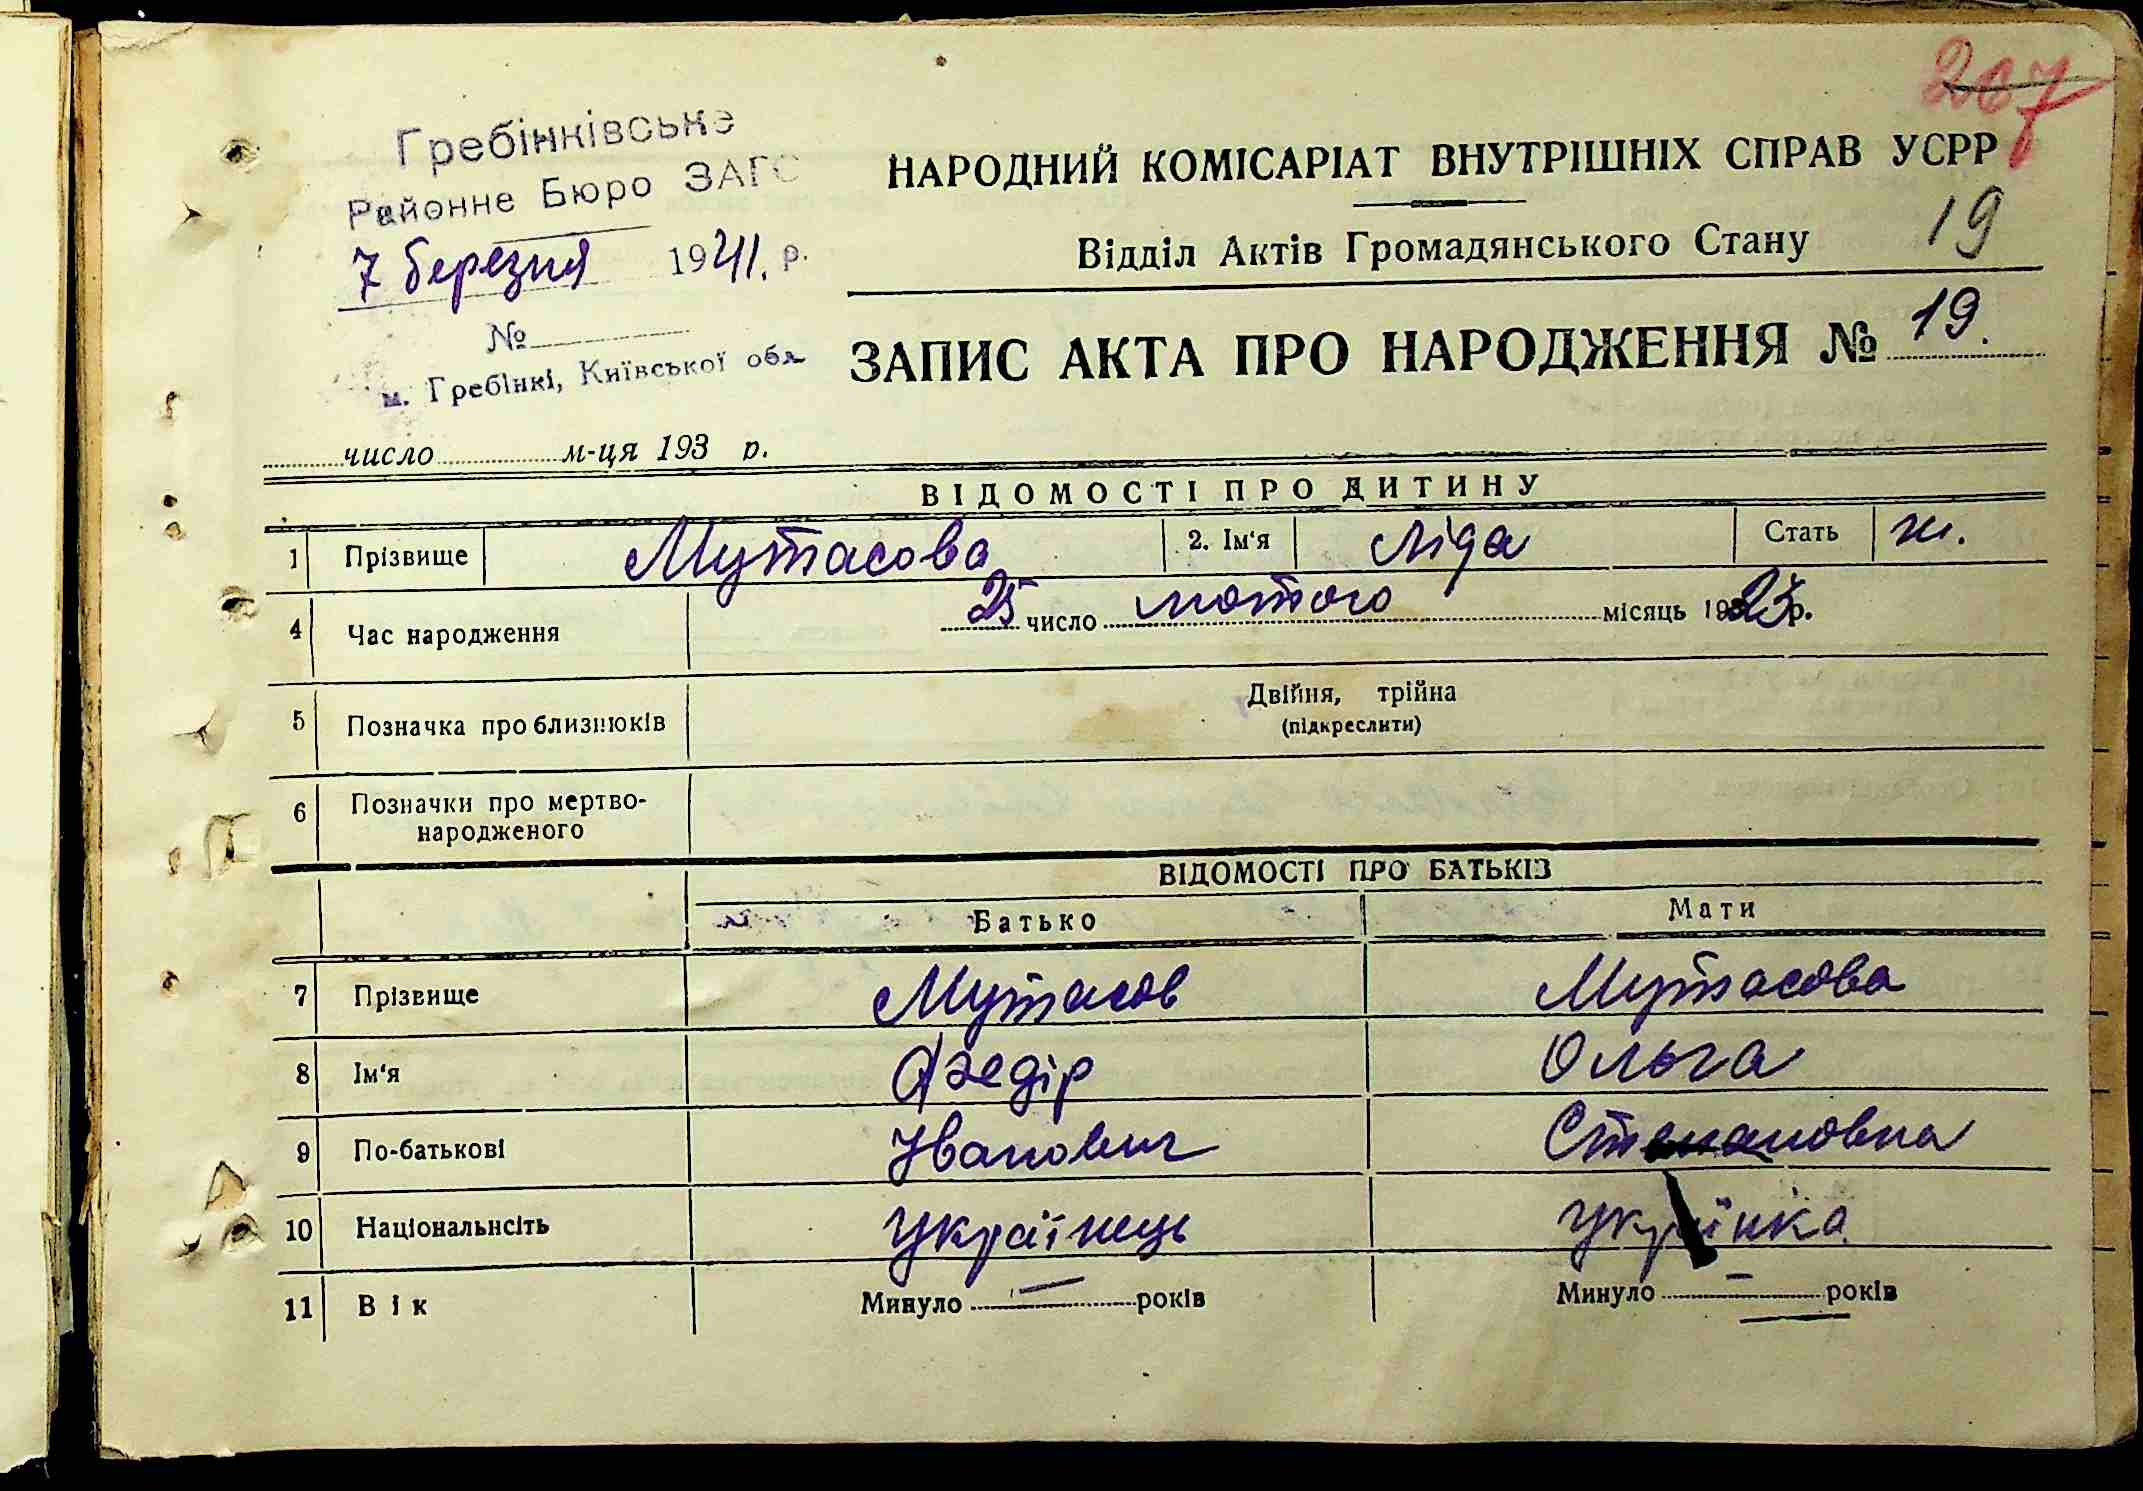 207
Гребінківське
Районне Бюро ЗАГС
7 березня 1941. р.
№
м. Гребінкі, Київської обл.
НАРОДНИЙ КОМІСАРІАТ ВНУТРІШНІХ СПРАВ УСРР
Відділ Актів Громадянського Стану
19
ЗАПИС АКТА ПРО НАРОДЖЕННЯ № 19.
число м-ця 193 р.
ВІДОМОСТІ ПРО ДИТИНУ
1 Прізвище Мутасова 2. Ім'я Ліда Стать ж.
4 Час народження 25 число лютого місяць 1925 р.
5 Позначка про близнюків Двійня, трійна
(підкреслити)
6 Позначки про мертво-
народженого
ВІДОМОСТІ ПРО БАТЬКІВ
Батько Мати
7 Прізвище Мутасов Мутасова
8 Ім'я Федір Ольга
9 По-батькові Іванович Степановна
10 Національність Українець Українка
11 Вік Минуло — років Минуло — років